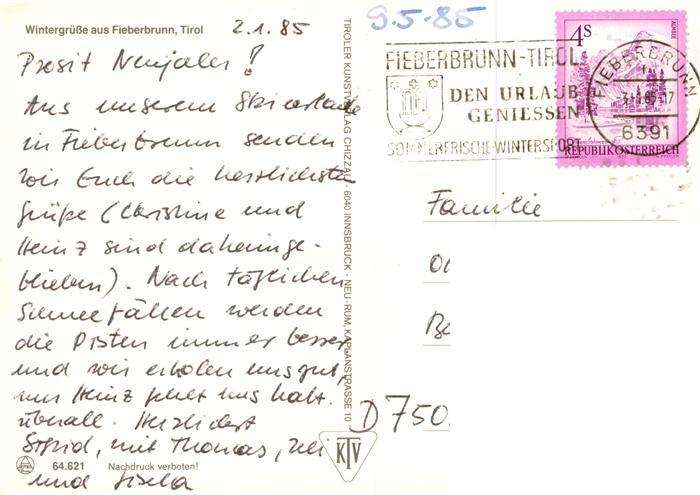 Wintergrüße aus Fieberbrunn, Tirol
2.1.85
Prosit Neujahr!
Aus unserem Skiurlaub
in Fieberbrunn senden
wir Euch die herzlichsten
Grüße (Christine und
Heinz sind daheimge-
blieben). Nach täglichen
Schneefällen werden
die Pisten immer besser
und wir erholen uns gut,
nur Heinz fehlt uns halt
überall. Herzlichst
mit Thomas,
und Gisela
64.621 Nachdruck verboten!
TIROLER KUNSTVERLAG CHIZZALI · 6040 INNSBRUCK - NEU-RUM, KAPLANSTRASSE 10
KTV
9.5.85
FIEBERBRUNN-TIROL
DEN URLAUB
GENIESSEN
SOMMERFRISCHE·WINTERSPORT
4S
ALMSEE
REPUBLIK ÖSTERREICH
FIEBERBRUNN
6391
Familie
D 750